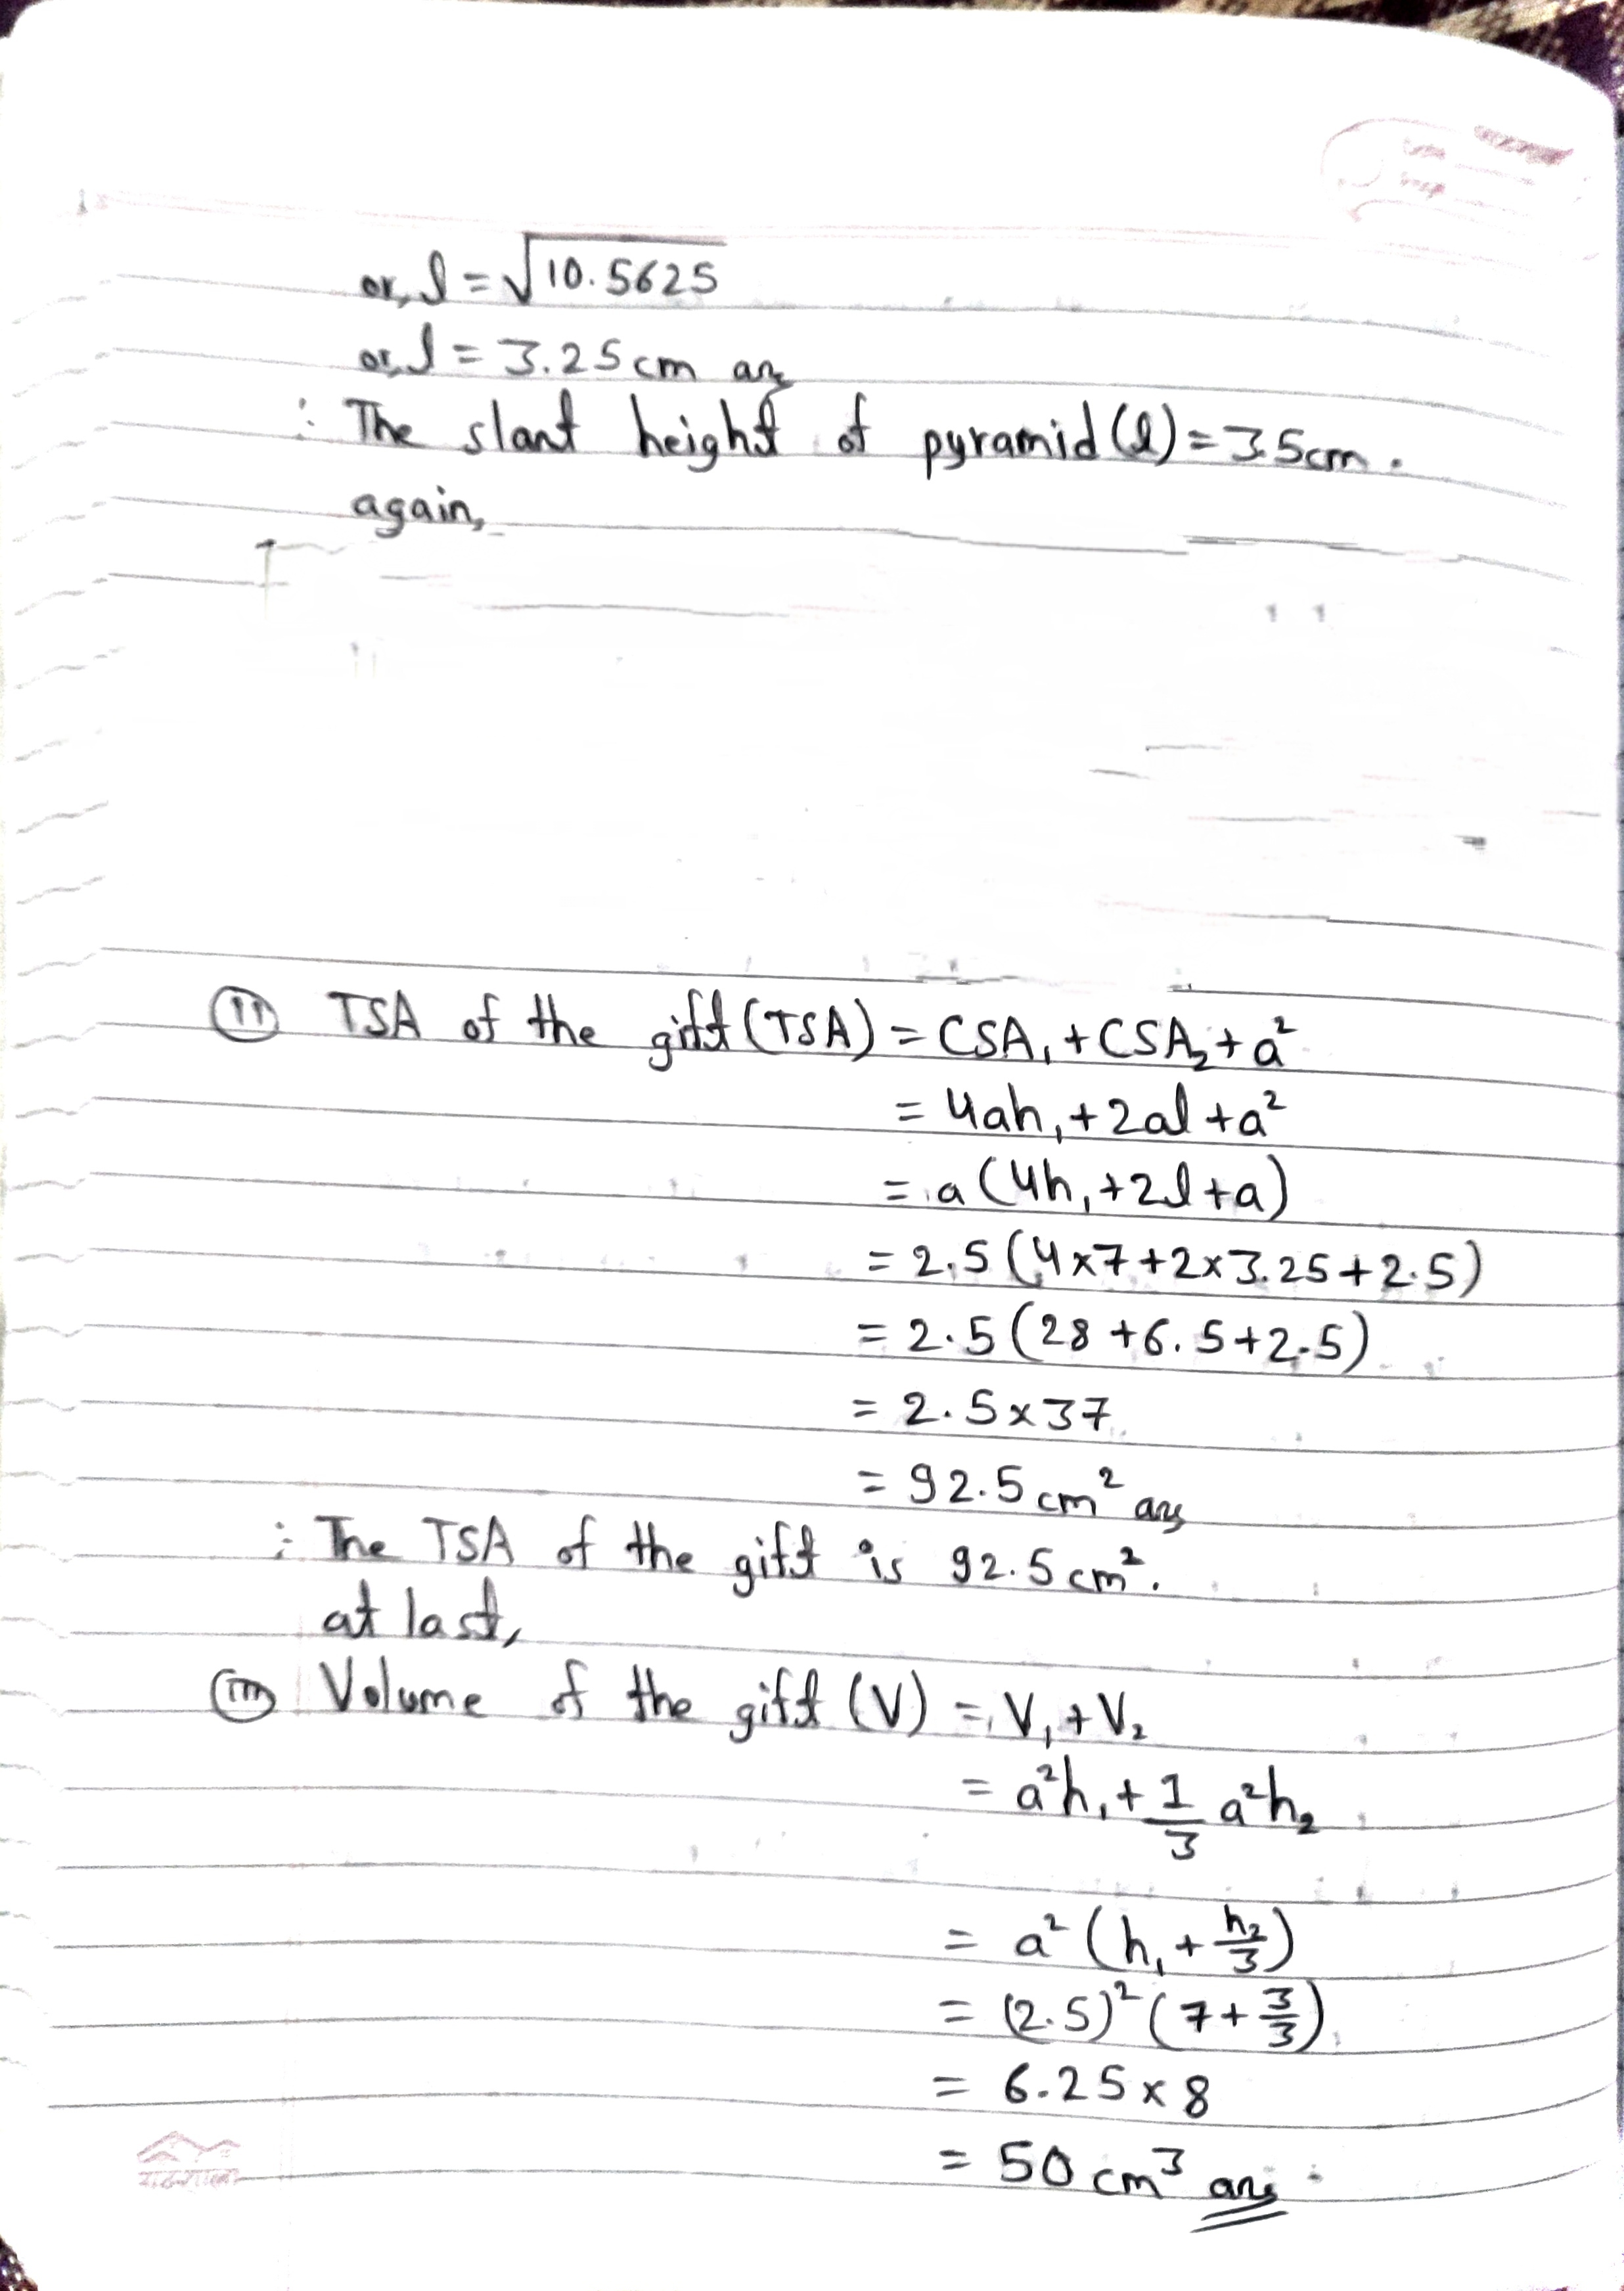 or, l = √10.5625
or, l = 3.25 cm ans
∴ The slant height of pyramid (l) = 3.5cm.
again,
(ii) TSA of the gift (TSA) = CSA₁ + CSA₂ + a²
= 4ah₁ + 2al + a²
= a (4h₁ + 2l + a)
= 2.5 (4 × 7 + 2 × 3.25 + 2.5)
= 2.5 (28 + 6.5 + 2.5)
= 2.5 × 37
= 92.5 cm² ans
∴ The TSA of the gift is 92.5 cm².
at last,
(iii) Volume of the gift (V) = V₁ + V₂
= a²h₁ + 1/3 a²h₂
= a² (h₁ + h₂/3)
= (2.5)² (7 + 3/3)
= 6.25 × 8
= 50 cm³ ans.